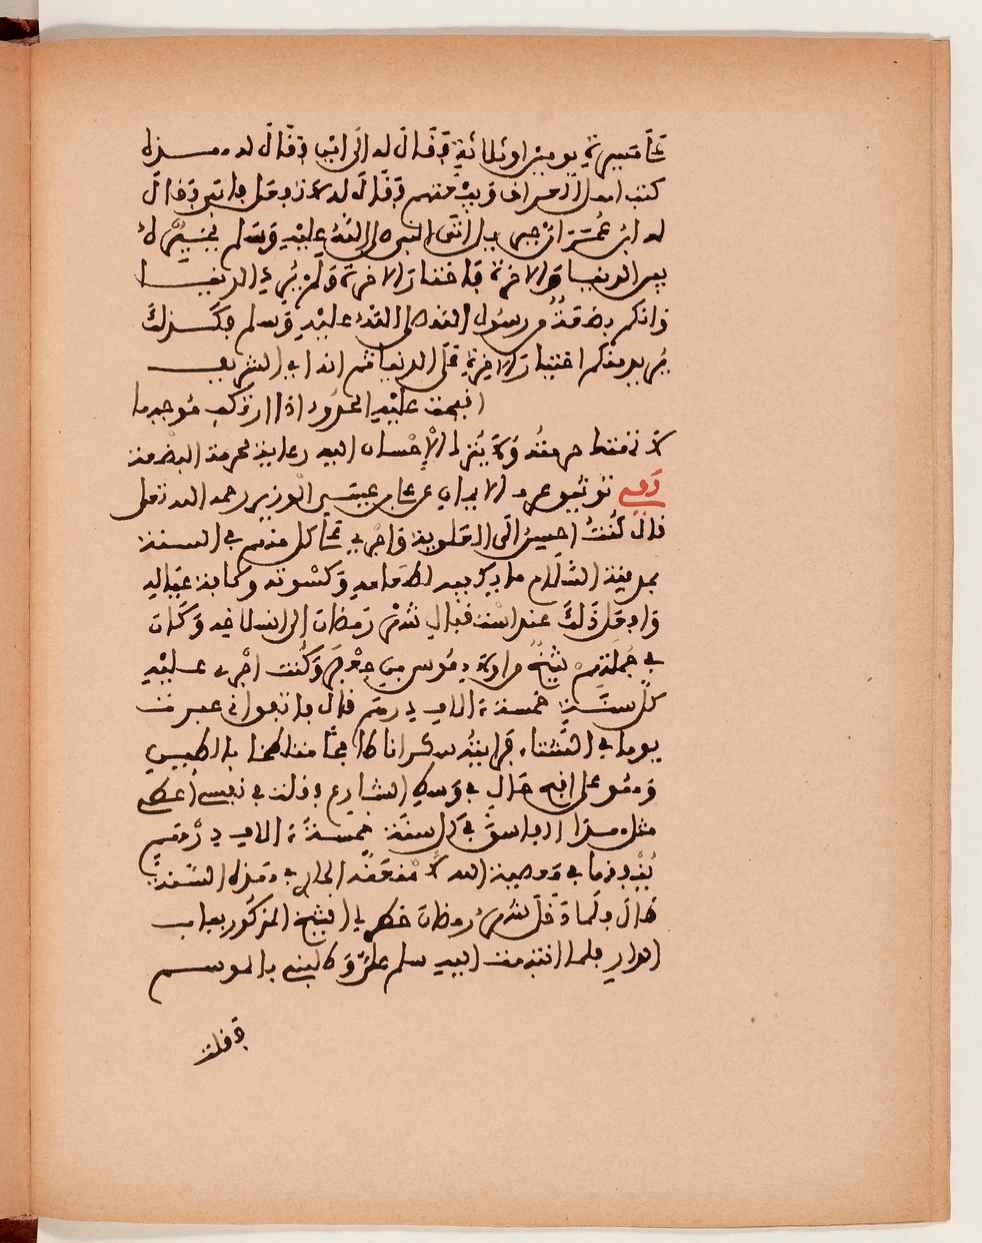 على مسيرة يومين او ثلاثة فقال له الى اين فقال له هذه
كتب اهل العراق وبيعتهم فقال له لا تفعل فابى فقال
له ابن عمر ان جبريل اتى النبي صلى الله عليه وسلم بخيره
بين الدنيا والاخرة فاختار الاخرة ولم يرد الدنيا
وانكم بضعة من رسول الله صلى الله عليه وسلم فكذلك
يريد منكم اختيار الاخرة على الدنيا ثم ان ابي الشريف
اقيمت عليه الحدود اذا ارتكب موجبها
لا تسقط حرمته ولا يترك الاحسان اليه رعاية لحرمة البضعة
وفي توثيق عرى الايمان عن علي بن عيسى الوزير رحمه الله تعلى
قال كنت احسن الى العلوية واجري على كل منهم في السنة
بمدينة السلام ما يكفيه لطعامه وكسوته وكفاية عياله
وافعل ذلك عند استقبال شهر رمضان الى انسلاخه وكان
في جملتهم شيخ من اولاد موسى بن جعفر وكنت اجري عليه
كل سنة خمسة ءالاف درهم قال فاتفق اني عبرت
يوما في الشتاء فرايته سكرانا طافحا متلطخا بالطين
وهو على اقبح حال في وسط الشارع فقلت في نفسي اعطي
مثل هذا الفاسق في كل سنة خمسة ءالاف درهم
ينفقها في معصية الله لا منعته الجاري هذه السنة
قال فلما دخل شهر رمضان حضر الشيخ المذكور بباب
الدار فلما انتهيت اليه سلم علي وطالبني بالموسم
فقلت